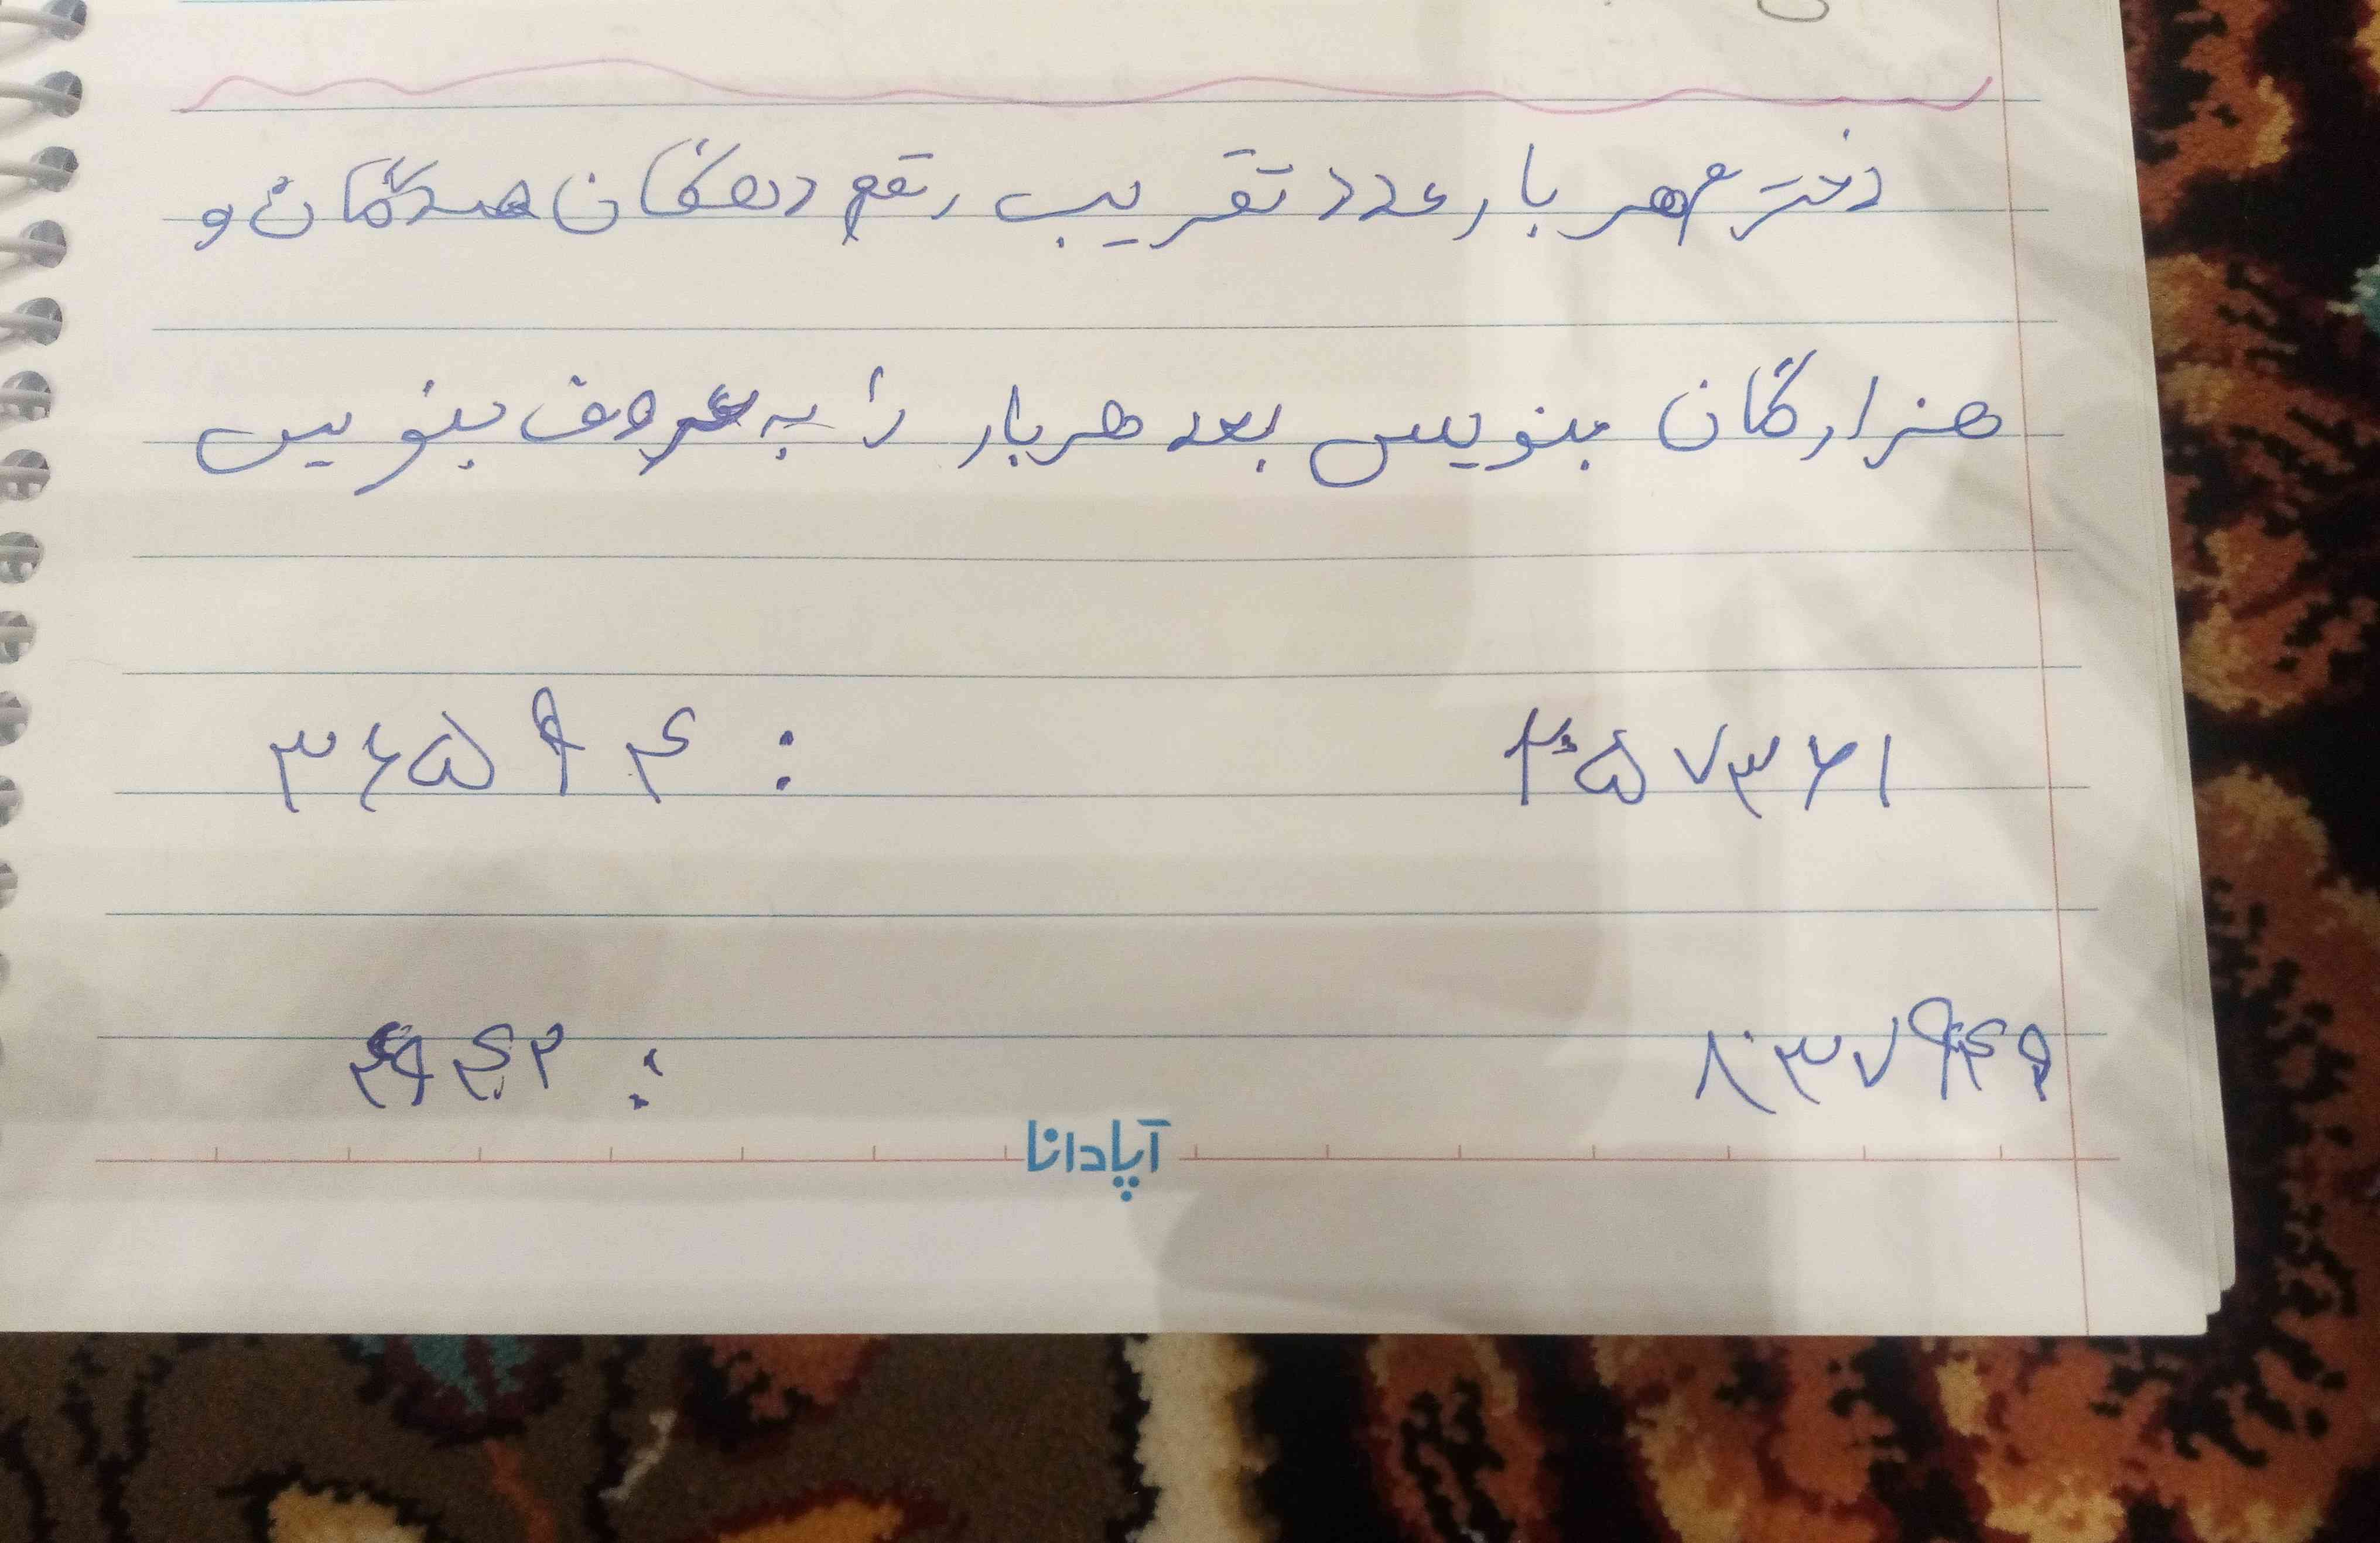 دخترم هر بار عدد تقریب رقم دهگان صدگان و
هزارگان بنویس بعد هر بار را به حروف بنویس
۲۵۷۳۶۱ ۳۶۵۹۴ :
۸۰۳۷۹۴۹ ۴۹۴۲ :
آپادانا